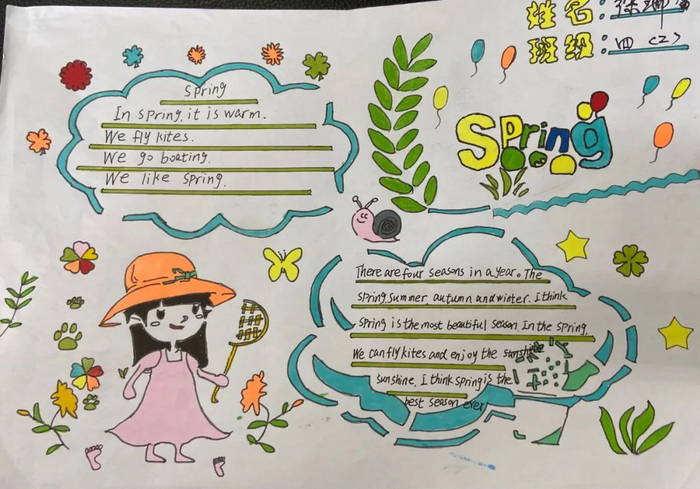 姓名:
班级:四(2)
Spring
Spring
In spring, it is warm.
We fly kites.
We go boating.
We like spring.
There are four seasons in a year. The
spring, summer, autumn and winter. I think
spring is the most beautiful season. In the spring,
We can fly kites and enjoy the sunshine
sunshine. I think spring is the
best season ever